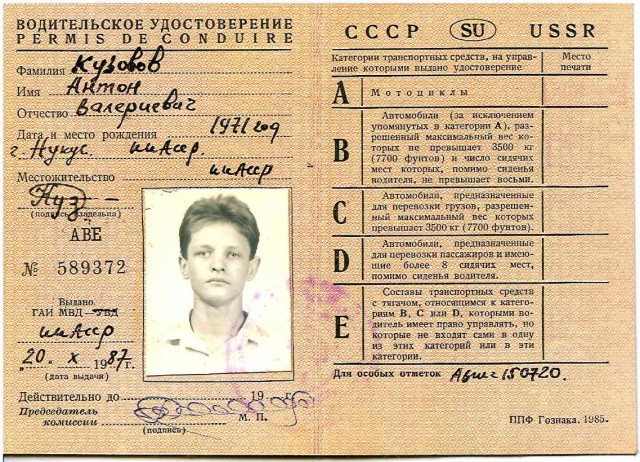 ВОДИТЕЛЬСКОЕ УДОСТОВЕРЕНИЕ
PERMIS DE CONDUIRE
Фамилия Кузовов
Имя Антон
Отчество Валериевич
Дата и место рождения 1971 год
г. Нукус
Местожительство
(подпись владельца)
АВЕ
№ 589372
Выдано
ГАИ МВД—УВД
20. X 1987г.
(дата выдачи)
Действительно до 19
Председатель
комиссии
М. П.
(подпись)
СССР SU USSR
Категории транспортных средств, на управ-
ление которыми выдано удостоверение
Место
печати
A Мотоциклы
B Автомобили (за исключением
упомянутых в категории А), раз-
решенный максимальный вес ко-
торых не превышает 3500 кг
(7700 фунтов) и число сидячих
мест которых, помимо сиденья
водителя, не превышает восьми.
C Автомобили, предназначенные
для перевозки грузов, разрешен-
ный максимальный вес которых
превышает 3500 кг (7700 фунтов).
D Автомобили, предназначенные
для перевозки пассажиров и имею-
щие более 8 сидячих мест,
помимо сиденья водителя.
E Составы транспортных средств
с тягачом, относящимся к катего-
риям В, С или D, которыми во-
дитель имеет право управлять, но
которые не входят сами в одну
из этих категорий или в эти
категории.
Для особых отметок 150720.
ППФ Гознака. 1985.